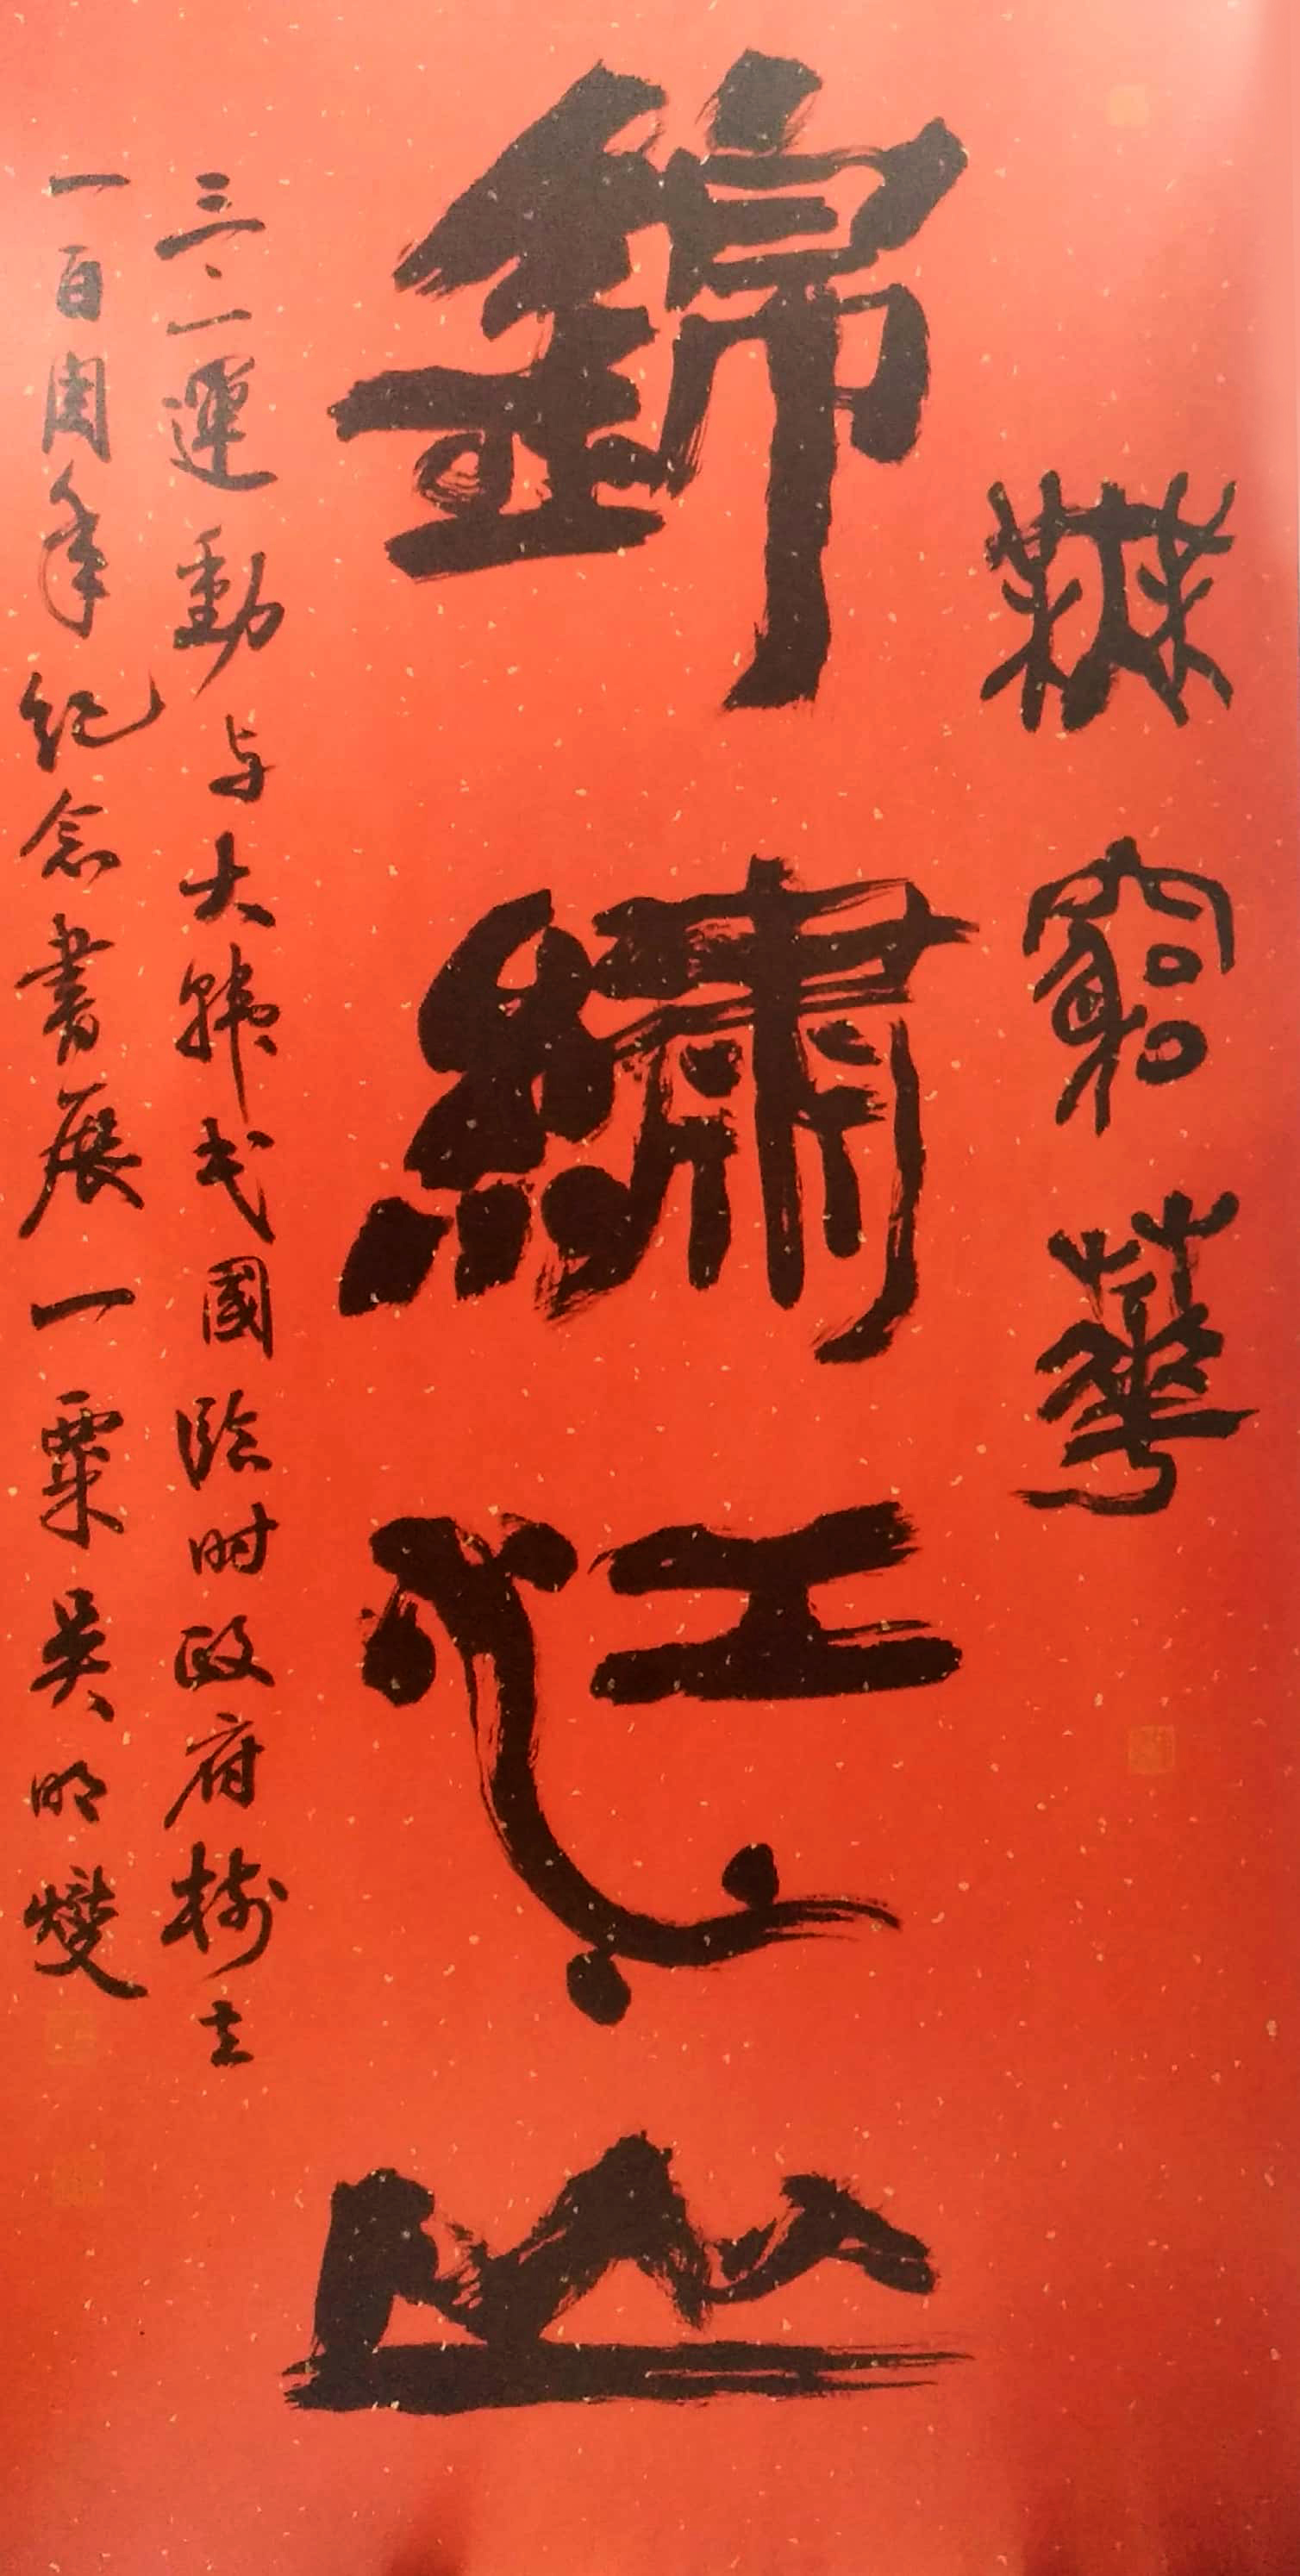 無窮華
錦繡江山
三一運動与大韓民國臨时政府樹立
一百周年紀念書展一粟吳明燮